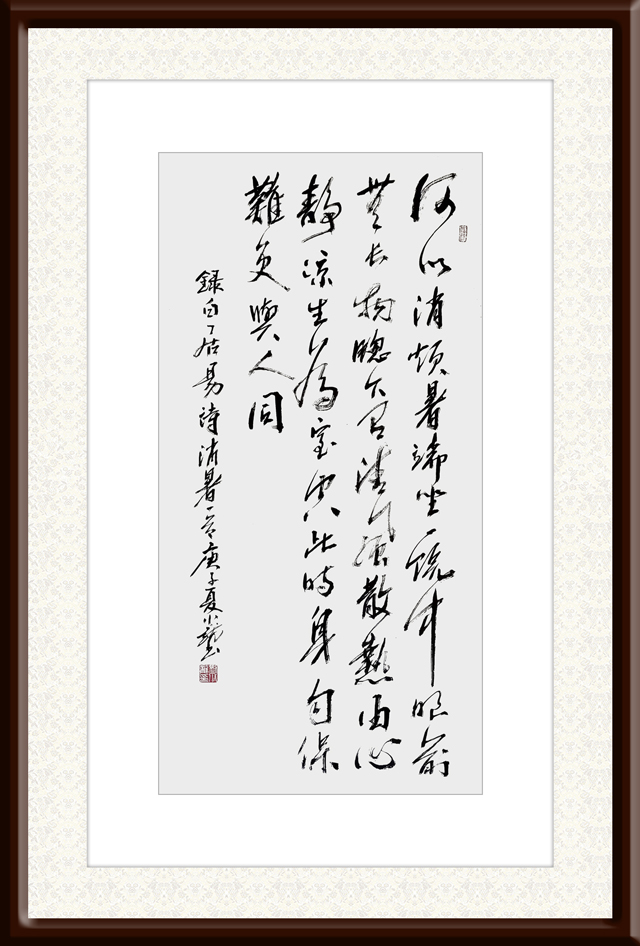 何以消烦暑端坐一院中眼前
無长物牕下有清风散熱由心
靜凉生为室空此时身自保
難更與人同
錄白居易詩消暑一首庚子夏